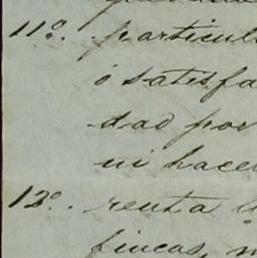 11º. particul
ó satisfa
dad por
ni hacer
12º. renta
fincas,